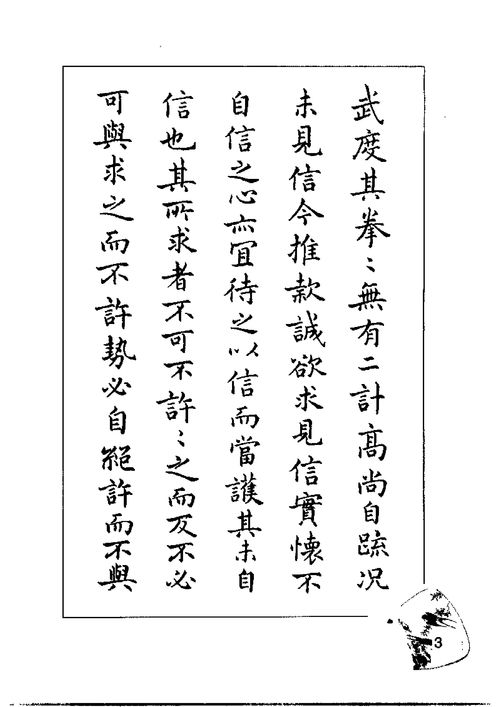 武度其拳〻無有二計高尚自疏况
未見信今推款誠欲求見信實懐不
自信之心亦冝待之以信而當護其未自
信也其所求者不可不許〻之而反不必
可與求之而不許勢必自絕許而不與
3